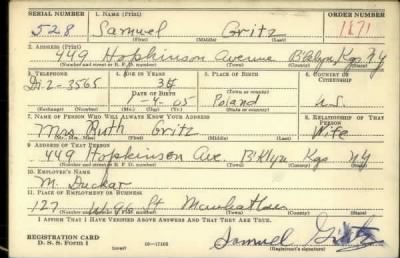 SERIAL NUMBER 1. NAME (Print) ORDER NUMBER
528 Samuel Gritz 1871
(First) (Middle) (Last)
2. ADDRESS (Print)
449 Hopkinson Avenue B'klyn, Kgs NY
(Number and street or R. F. D. number) (Town) (County) (State)
3. TELEPHONE 4. AGE IN YEARS 5. PLACE OF BIRTH 6. COUNTRY OF CITIZENSHIP
2-3565 35 Poland U.S.
DATE OF BIRTH (Town or county)
-4-05
(Exchange) (Number) (Mo.) (Day) (Yr.) (State or country)
7. NAME OF PERSON WHO WILL ALWAYS KNOW YOUR ADDRESS 8. RELATIONSHIP OF THAT PERSON
Mrs Ruth Gritz Wife
(Mr., Mrs., Miss) (First) (Middle) (Last)
9. ADDRESS OF THAT PERSON
449 Hopkinson Ave. B'klyn Kgs NY
(Number and street or R. F. D. number) (Town) (County) (State)
10. EMPLOYER'S NAME
M. Duckar
11. PLACE OF EMPLOYMENT OR BUSINESS
127 W 96 St Manhattan
(Number and street or R. F. D. number) (Town) (County) (State)
I AFFIRM THAT I HAVE VERIFIED ABOVE ANSWERS AND THAT THEY ARE TRUE.
REGISTRATION CARD
D. S. S. Form 1 16—17105 Samuel Gritz
(Registrant's signature)